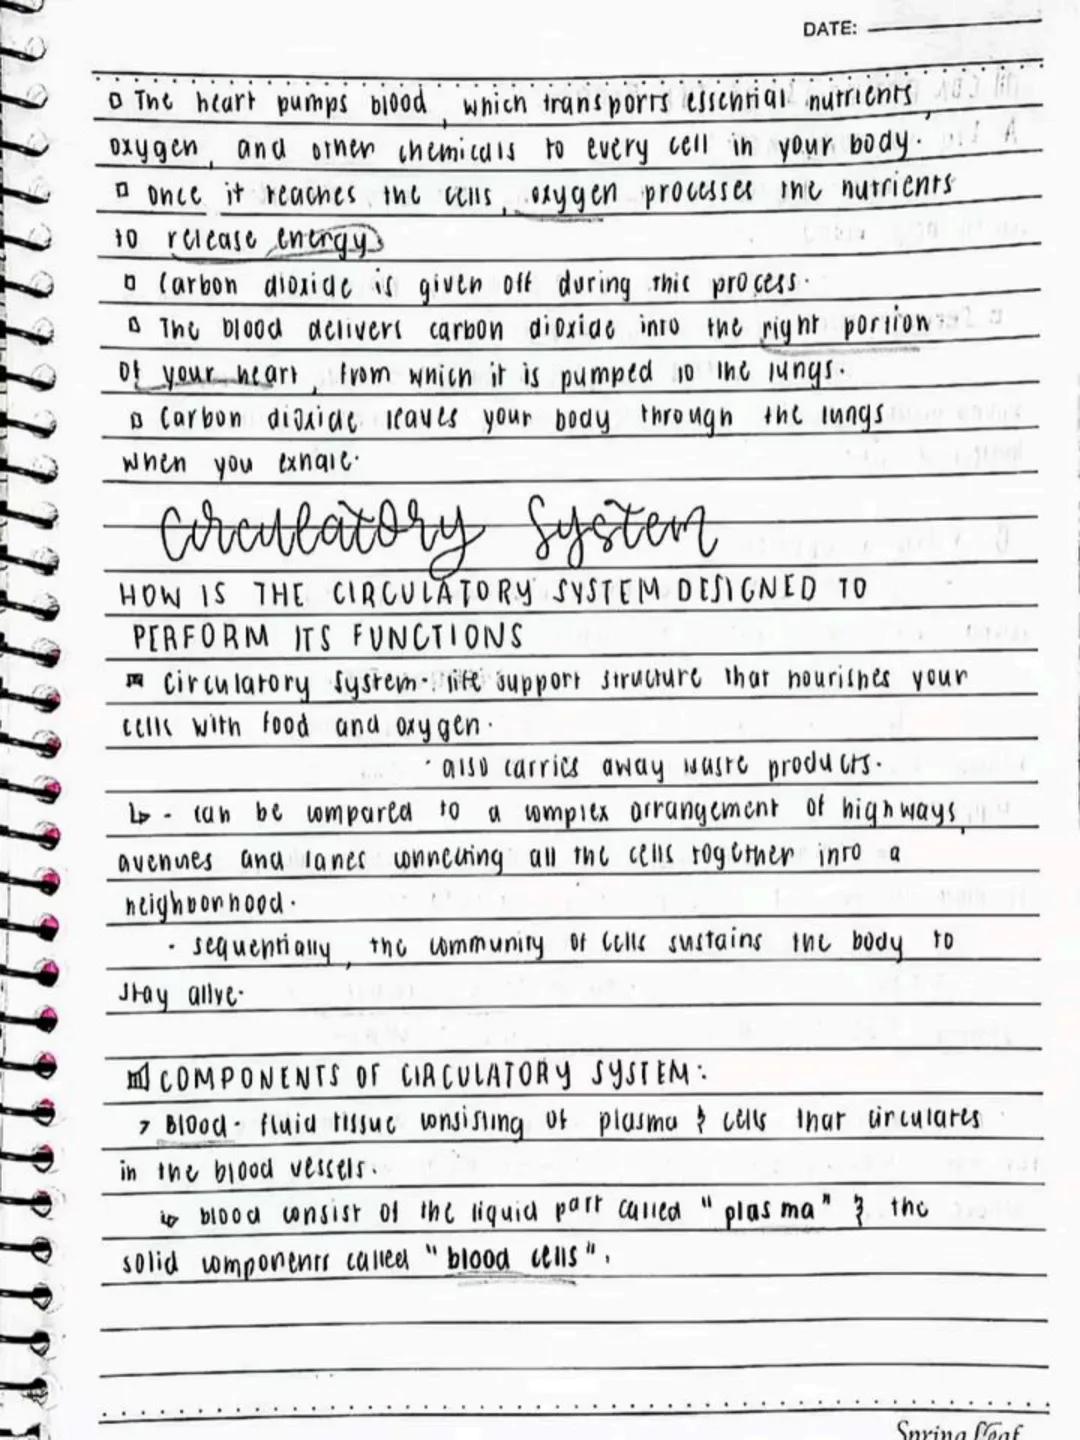 DATE:
▫ The heart pumps blood, which transports essential nutrients,
oxygen, and other chemicals to every cell in your body.
▫ once it reaches the cells, oxygen processes the nutrients
to release energy
▫ Carbon dioxide is given off during this process.
▫ The blood delivers carbon dioxide into the right portion
of your heart, from which it is pumped to the lungs.
▫ Carbon dioxide leaves your body through the lungs
when you exhale.
Circulatory System
HOW IS THE CIRCULATORY SYSTEM DESIGNED TO
PERFORM ITS FUNCTIONS
Circulatory System - life support structure that nourishes your
cells with food and oxygen.
· also carries away waste products.
↳ - can be compared to a complex arrangement of highways,
avenues and lanes connecting all the cells together into a
neighborhood.
· sequentially, the community of cells sustains the body to
stay alive.
COMPONENTS OF CIRCULATORY SYSTEM:
> Blood - fluid tissue consisting of plasma & cells that circulates
in the blood vessels.
↳ blood consist of the liquid part called "plasma" & the
solid components called "blood cells".
Spring Leaf